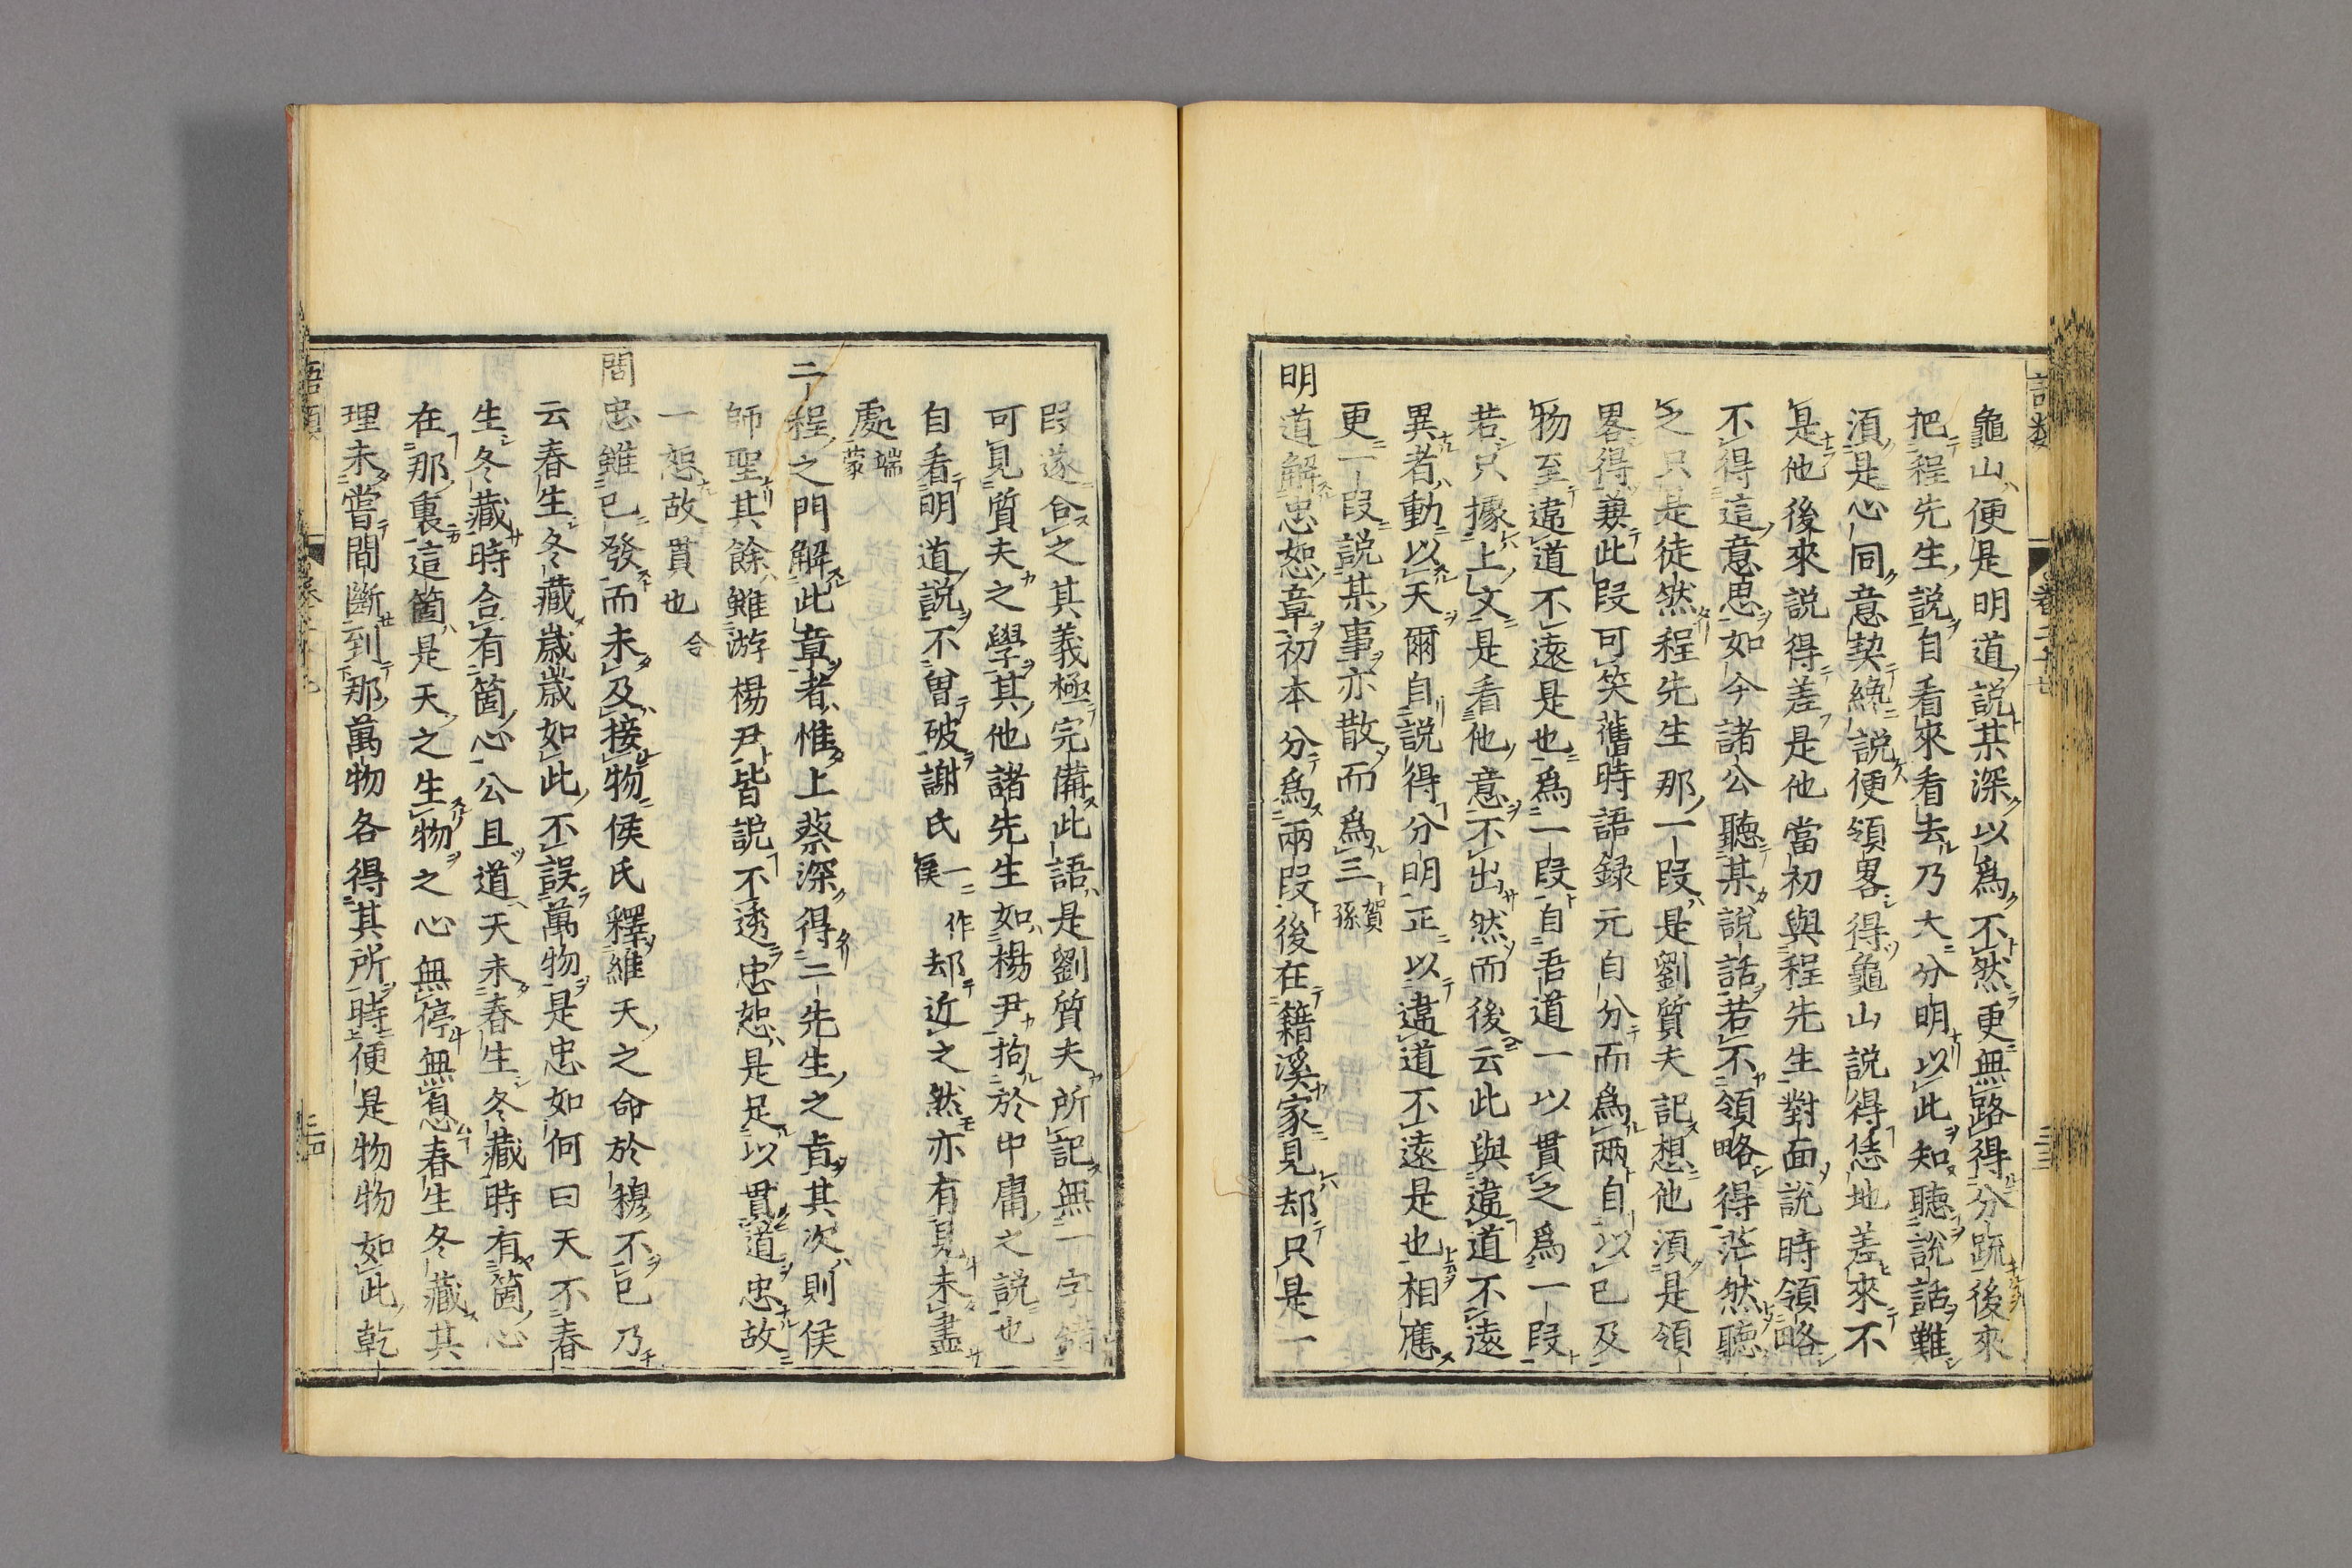 語類
卷二十七
三三
龜山便是明道說某深以爲不然更無路得分疏後來
把程先生說自看來看去乃大分明以此知聽說話難
須是心同意契纔說便領畧得龜山說得恁地差來不
是他後來說得差是他當初與程先生對面說時領略
不得這意思如今諸公聽某說話若不領略得茫然聽
之只是徒然程先生那一段是劉質夫記想他須是領
畧得兼此段可笑舊時語錄元自分而爲兩自以已及
物至違道不遠是也爲一段自吾道一以貫之爲一段
若只據上文是看他意不出然而後云此與違道不遠
異者動以天爾自說得分明正以違道不遠是也相應
更一段說某事亦散而爲三賀孫
明道解忠恕章初本分爲兩段後在籍溪家見却只是一
段遂合之其義極完備此語是劉質夫所記無一字錯
可見質夫之學其他諸先生如楊尹拘於中庸之說也
自看明道說不曾破謝氏一作侯却近之然亦有見未盡
處端蒙
二程之門解此章者惟上蔡深得二先生之旨其次則侯
師聖其餘雖游楊尹皆說不透忠恕是足以貫道忠故
一恕故貫也㑒
問忠雖已發而未及接物侯氏釋維天之命於穆不已乃
云春生冬藏歲歲如此不誤萬物是忠如何曰天不春
生冬藏時合有箇心公且道天未春生冬藏時有箇心
在那裏這箇是天之生物之心無停無息春生冬藏其
理未嘗間斷到那萬物各得其所時便是物物如此乾
語類